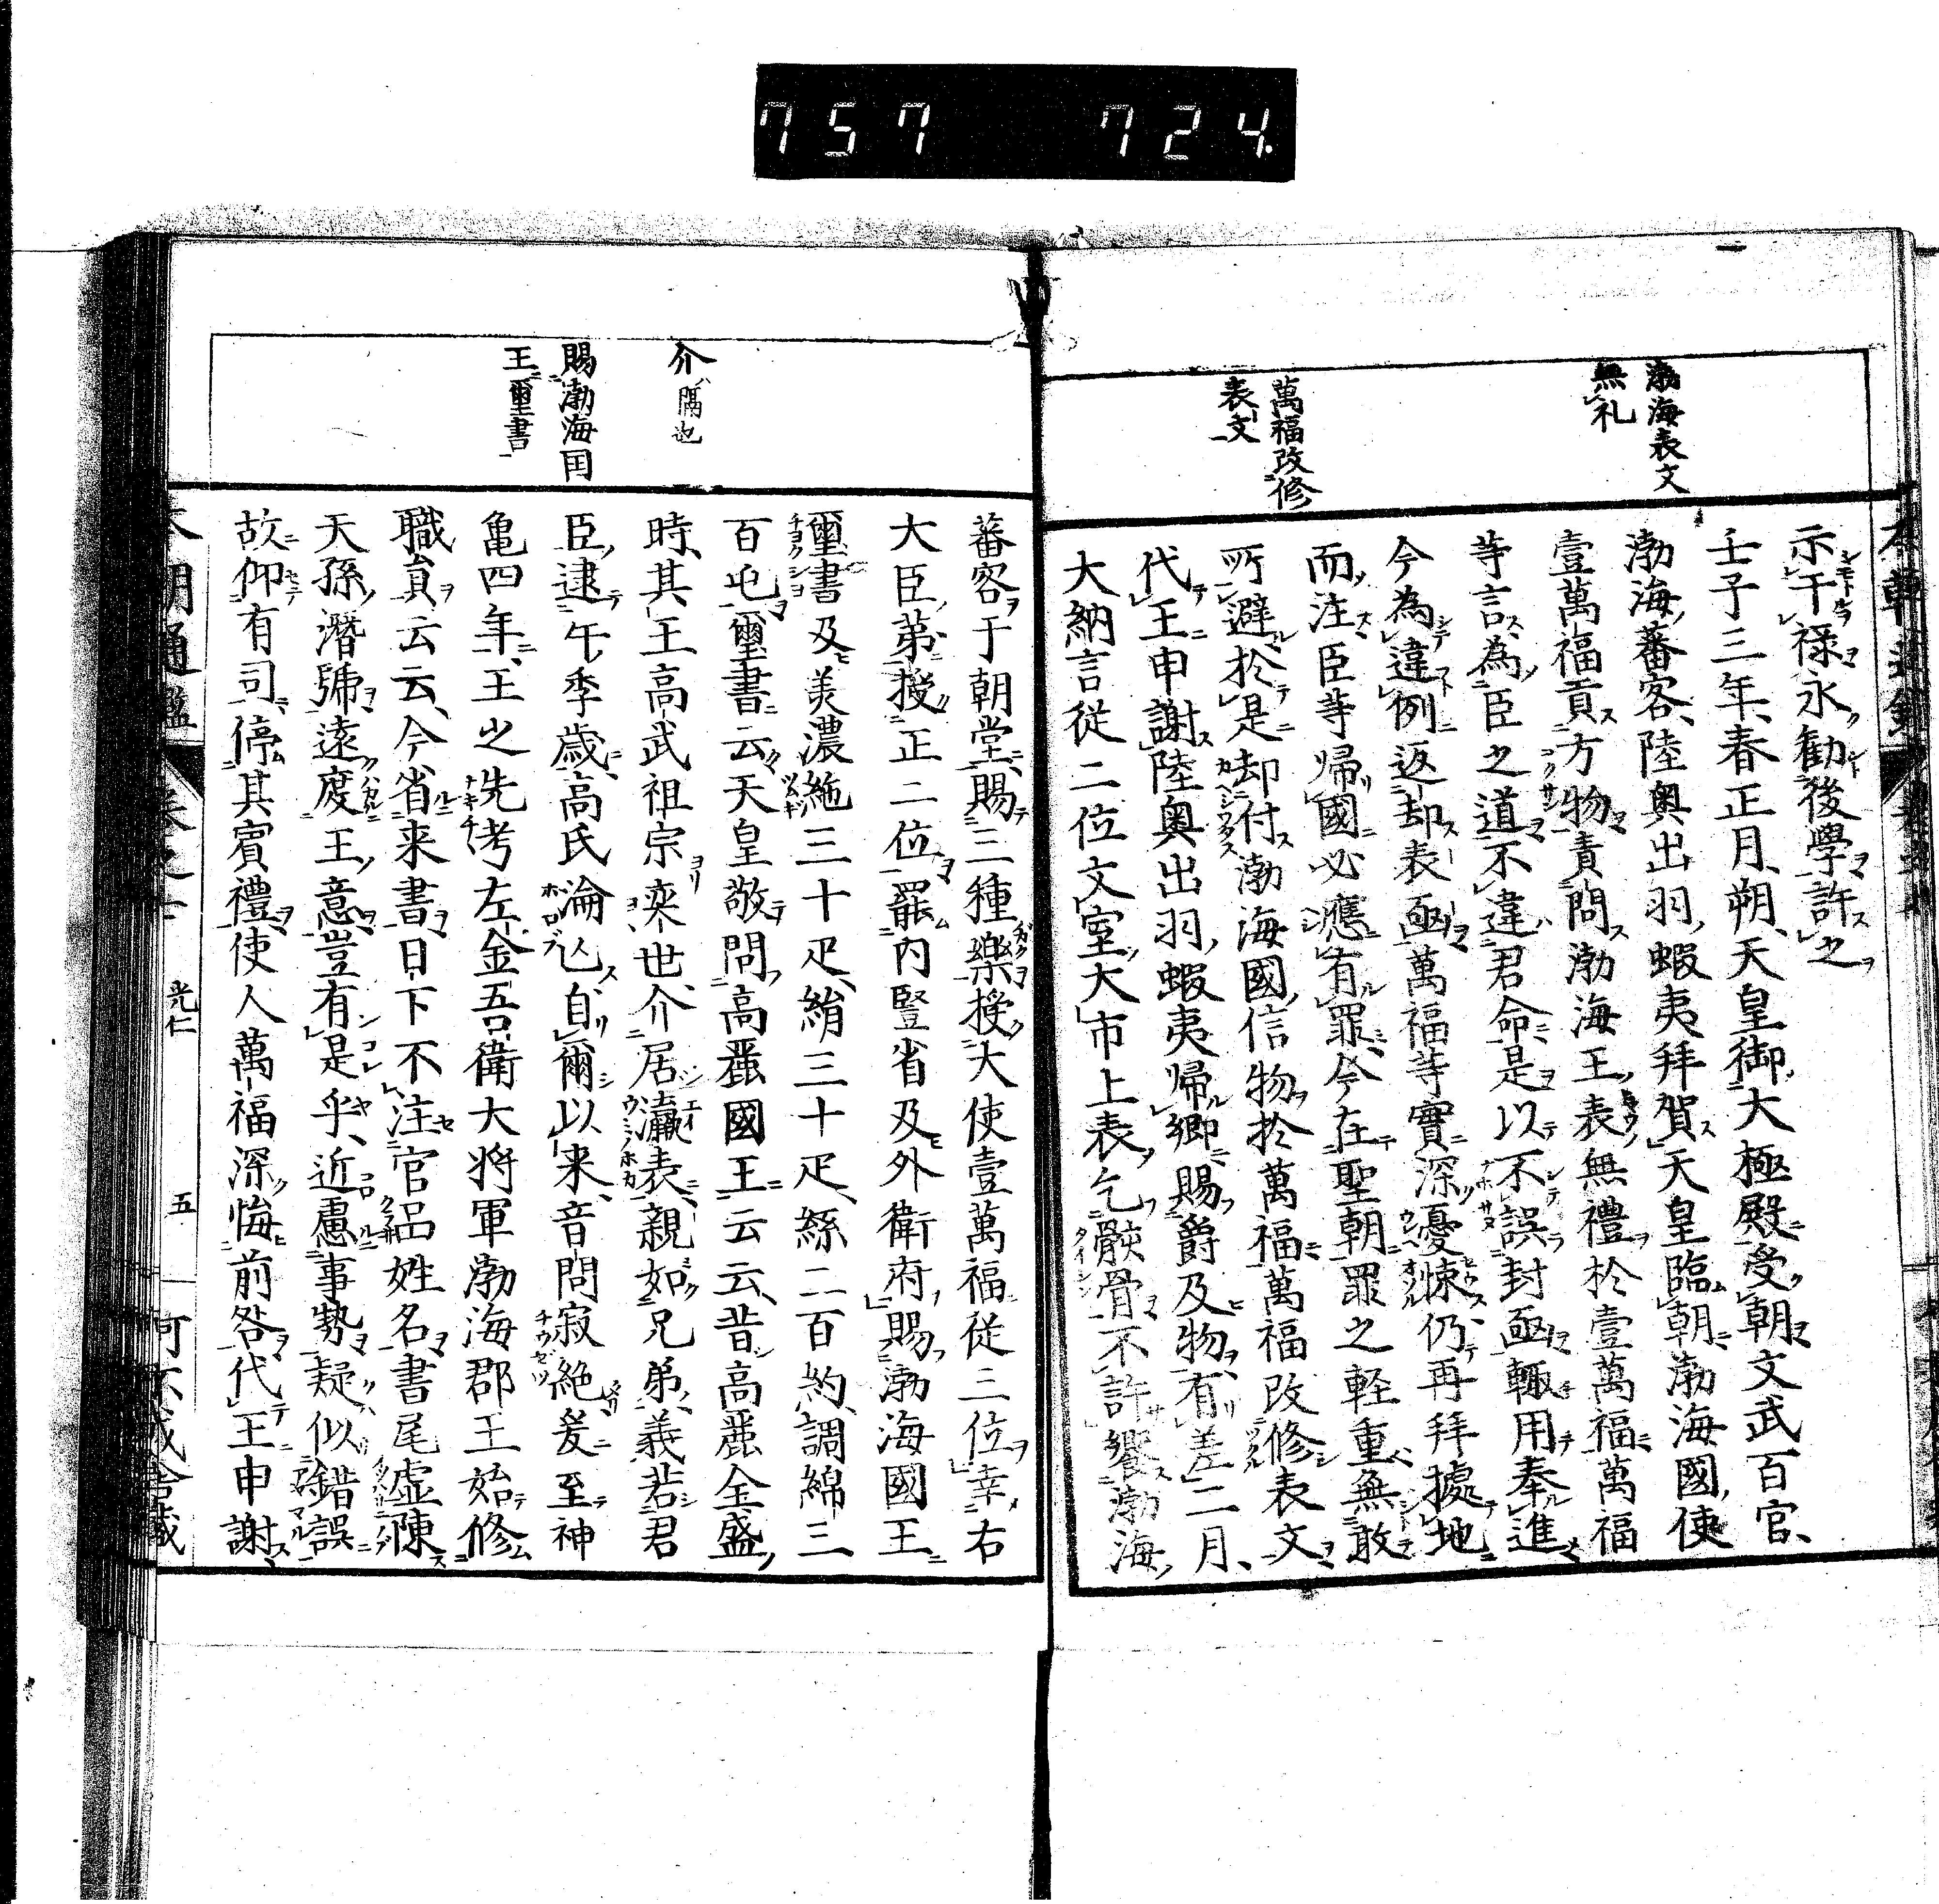 757 724.
渤海表文
無礼
萬福改修
表文
示干禄永勧後學許之
壬子三年春正月朔天皇御大極殿受朝文武百官
渤海蕃客陸奥出羽蝦夷拜賀天皇臨朝渤海國使
壹萬福貢方物責問渤海王表無禮於壹萬福萬福
等言為臣之道不違君命是以不誤封凾輙用奉進
今為違例返却表凾萬福等實深憂悚仍再拜據地
而泣臣等歸國必應有罪今在聖朝罪之軽重無敢
所避於是却付渤海國信物於萬福萬福改修表文
代王申謝陸奥出羽蝦夷帰郷賜爵及物有差二月
大納言従二位文室大市上表乞骸骨不許饗渤海
介隔也
賜渤海国
王璽書
蕃客于朝堂賜三種樂授大使壹萬福従三位幸右
大臣第授正二位罷内竪省及外衛府賜渤海國王
璽書及美濃絁三十疋絹三十疋絲二百約調綿三
百屯璽書云天皇敬問高麗國王云云昔高麗全盛
時其王高武祖宗奕世介居瀛表親如兄弟義若君
臣逮乎季歳高氏淪亡自爾以来音問寂絶爰至神
亀四年王之先考左金吾衛大将軍渤海郡王始修
職貢云云今省来書日下不注官品姓名書尾虚陳
天孫潛號遠度王意豈有是乎近慮事勢疑似錯誤
故仰有司停其賓禮使人萬福深悔前咎代王申謝
本朝通鑑
光仁
五